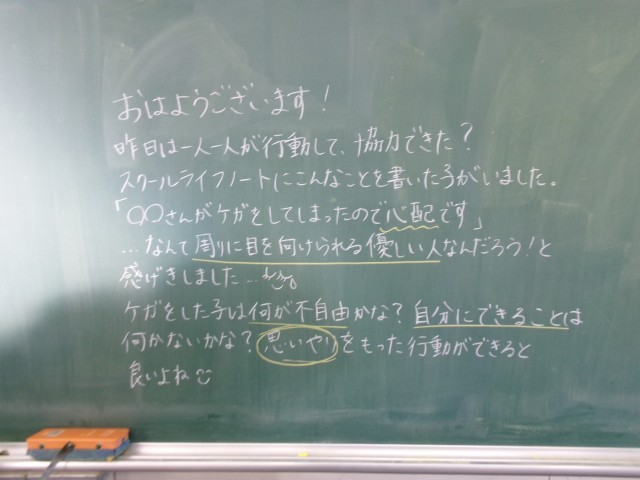 おはようございます!
昨日は一人一人が行動して、協力できた?
スクールライフノートにこんなことを書いた子がいました。
「〇〇さんがケガをしてしまったので心配です」
…なんて周りに目を向けられる優しい人なんだろう!と
感げきしました…
ケガをした子は何が不自由かな?自分にできることは
何かないかな?思いやりをもった行動ができると
良いよね